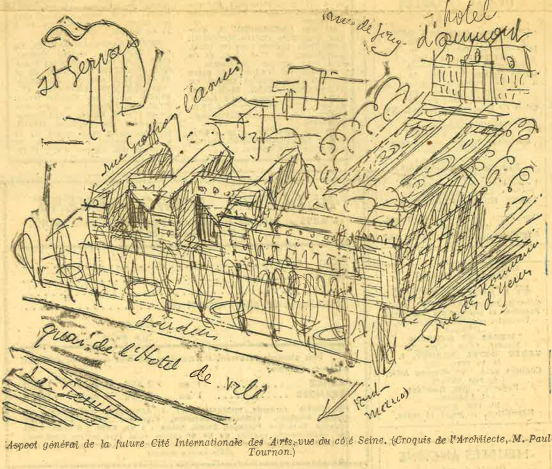 hotel
d'aumont
St Gervais
rue Geoffroy l'asnier
rue de Jouy
jardin
quai de l'Hotel de ville
La Seine
Aspect général de la future Cité Internationale des Arts, vue du côté Seine. (Croquis de l'Architecte, M. Paul
Tournon.)